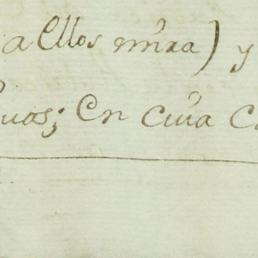 a Ellos mira) y
uas; En cuia C